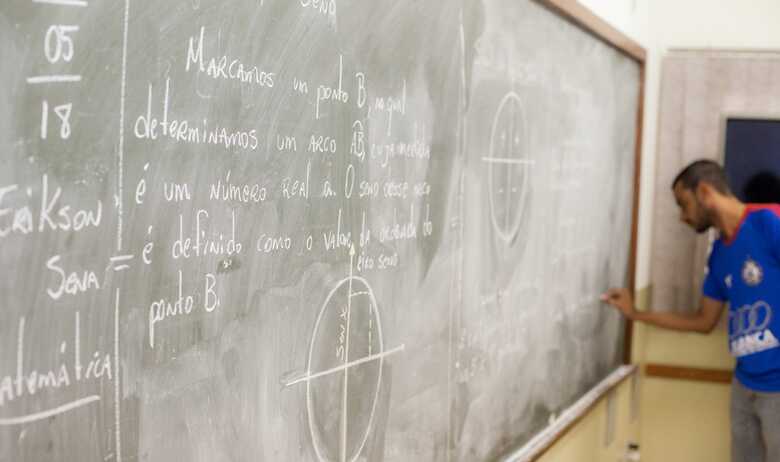 05
18
Erikson
Sena
Matemática
Seno
Marcamos um ponto B, no qual
determinamos um arco AB, cuja medida
é um número real a. O seno desse arco
é definido como o valor da ordenada do
ponto B.
eixo seno
Sen x